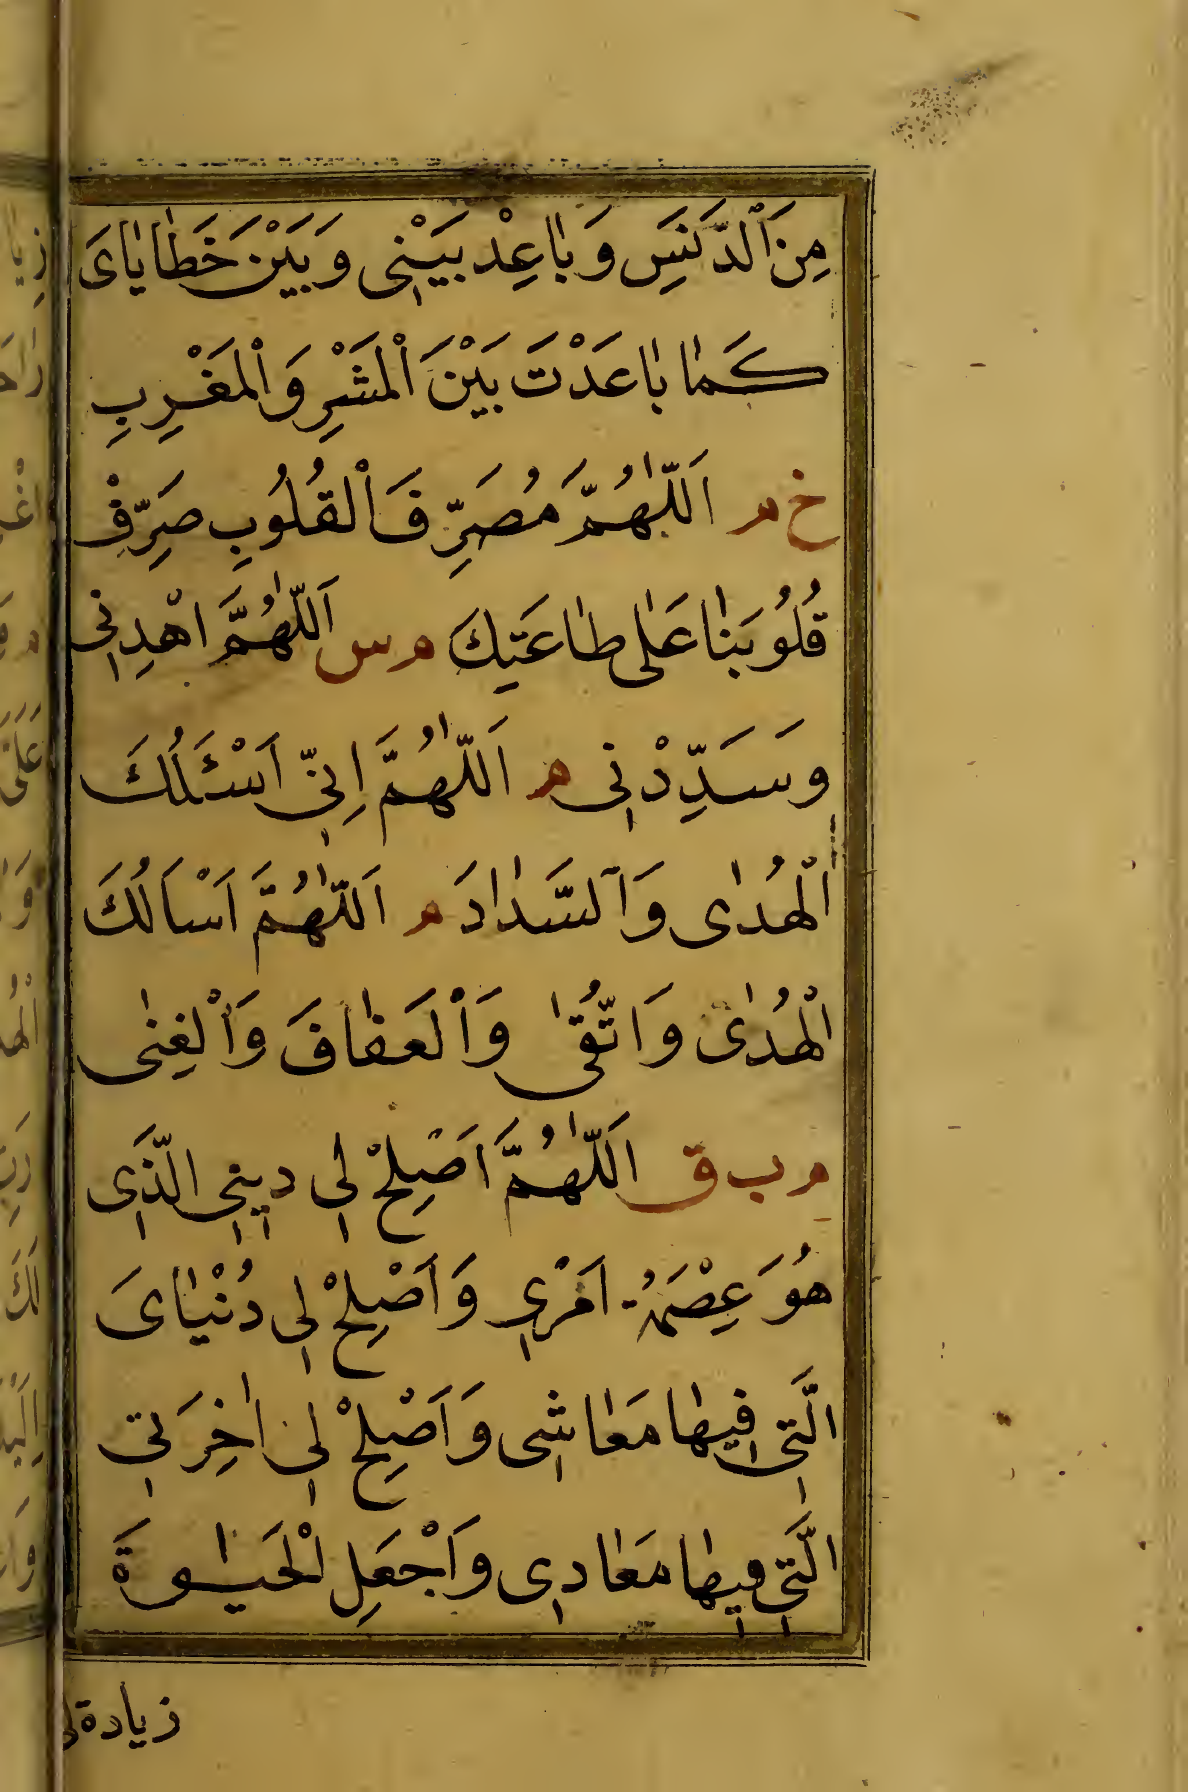 مِنَ الدَّنَسِ وَبَاعِدْ بَيْنِي وَبَيْنَ خَطَايَايَ
كَمَا بَاعَدْتَ بَيْنَ الْمَشْرِ وَالْمَغْرِبِ
خ م اَللّٰهُمَّ مُصَرِّفَ الْقُلُوبِ صَرِّفْ
قُلُوبَنَا عَلٰى طَاعَتِكَ م س اَللّٰهُمَّ اهْدِنِى
وَسَدِّدْنِى م اَللّٰهُمَّ اِنِّى اَسْئَلُكَ
الْهُدٰى وَالسَّدَادَ م اَللّٰهُمَّ اَسْاَلُكَ
الْهُدٰى وَاتُّقٰى وَالْعَفَافَ وَالْغِنٰى
م ب ق اَللّٰهُمَّ اَصْلِحْ لِى دِينِى الَّذِى
هُوَ عِصْمَةُ اَمْرِى وَاَصْلِحْ لِى دُنْيَاىَ
الَّتِى فِيهَا مَعَاشِى وَاَصْلِحْ لِى اٰخِرَتِى
الَّتِى فِيهَا مَعَادِى وَاجْعَلِ الْحَيٰوةَ
زيادة لى